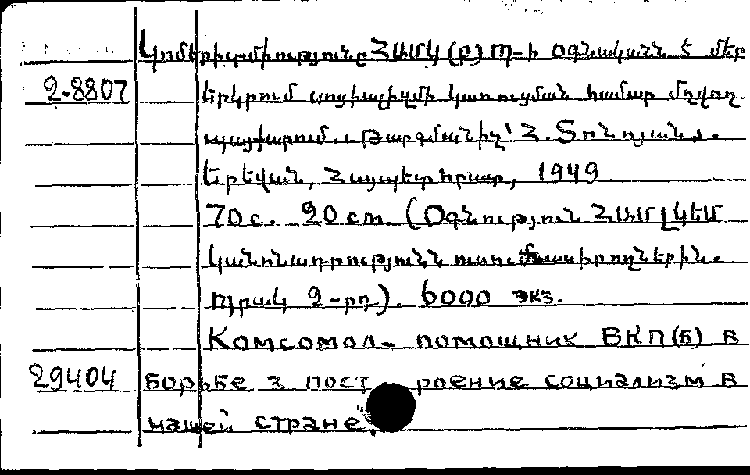 Կոմերիտմիությունը ՀամԿ(բ)Պ-ի օգնականն է մեր
2-8807 երկրում սոցիալիզմի կառուցման համար մղվող
պայքարում. Թարգմանիչ՝ Հ. Տոնոյան.
Երեվան, Հայպետհրատ, 1949
70 с. 20 см. (Օգնություն ՀամԼԿԵՄ
կանոնադրությունն ուսումնասիրողներին.
Պրակ 2-րդ). 6000 экз.
Комсомол- помощник ВКП(б) в
29404 борьбе з пост роение социализм в
нашей стране.